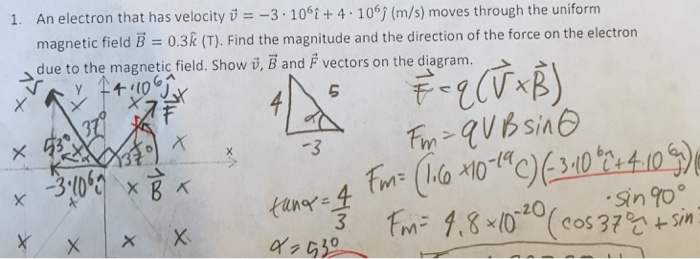 1. An electron that has velocity v⃗ = −3 · 10⁶î + 4 · 10⁶ĵ (m/s) moves through the uniform
magnetic field B⃗ = 0.3k̂ (T). Find the magnitude and the direction of the force on the electron
due to the magnetic field. Show v⃗, B⃗ and F⃗ vectors on the diagram.
V⃗ y 4·10⁶ĵ x
x x x F⃗
37°
x 53° x 37° x x
-3·10⁶î x B⃗ x
x
x x x x
4 5
α
-3
tanα = 4/3
α = 53°
F⃗ = q(V⃗ × B⃗)
Fm = qVB sinθ
Fm = (1.6 x10⁻¹⁹C)(-3·10⁶î + 4·10⁶ĵ)(
· sin 90°
Fm = 4.8 x10⁻²⁰ (cos 37° î + sin